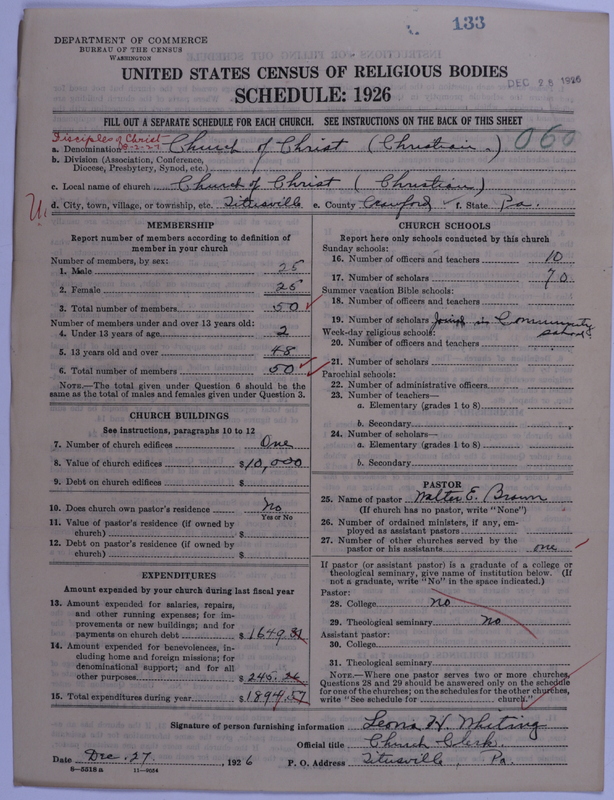 133
DEPARTMENT OF COMMERCE
BUREAU OF THE CENSUS
WASHINGTON
UNITED STATES CENSUS OF RELIGIOUS BODIES
DEC 28 1926
SCHEDULE: 1926
FILL OUT A SEPARATE SCHEDULE FOR EACH CHURCH. SEE INSTRUCTIONS ON THE BACK OF THIS SHEET
Disciples of Christ
060
a. Denomination Church of Christ (Christian)
b. Division (Association, Conference,
Diocese, Presbytery, Synod, etc.)
c. Local name of church Church of Christ (Christian)
d. City, town, village, or township, etc. Titusville e. County Crawford f. State Pa.
MEMBERSHIP
Report number of members according to definition of
member in your church
Number of members, by sex:
1. Male 25
2. Female 25
3. Total number of members 50
Number of members under and over 13 years old:
4. Under 13 years of age 2
5. 13 years old and over 48
6. Total number of members 50
NOTE.—The total given under Question 6 should be
same as the total of males and females given under Question 3.
CHURCH BUILDINGS
See instructions, paragraphs 10 to 12
7. Number of church edifices One
8. Value of church edifices $10,000
9. Debt on church edifices $
10. Does church own pastor's residence No
Yes or No
11. Value of pastor's residence (if owned by
church) $
12. Debt on pastor's residence (if owned by
church) $
EXPENDITURES
Amount expended by your church during last fiscal year
13. Amount expended for salaries, repairs,
and other running expenses; for im-
provements or new buildings; and for
payments on church debt $1649.31
14. Amount expended for benevolences, in-
cluding home and foreign missions; for
denominational support; and for all
other purposes $245.26
15. Total expenditures during year $1894.57
CHURCH SCHOOLS
Report here only schools conducted by this church
Sunday schools:
16. Number of officers and teachers 10
17. Number of scholars 70
Summer vacation Bible schools:
18. Number of officers and teachers
19. Number of scholars Joined in Community
school
Week-day religious schools:
20. Number of officers and teachers
21. Number of scholars
Parochial schools:
22. Number of administrative officers
23. Number of teachers—
a. Elementary (grades 1 to 8)
b. Secondary
24. Number of scholars—
a. Elementary (grades 1 to 8)
b. Secondary
PASTOR
25. Name of pastor Walter E. Brown
(If church has no pastor, write "None")
26. Number of ordained ministers, if any, em-
ployed as assistant pastors
27. Number of other churches served by the
pastor or his assistants one
If pastor (or assistant pastor) is a graduate of a college or
theological seminary, give name of institution below. (If
not a graduate, write "No" in the space indicated.)
Pastor:
28. College No
29. Theological seminary No
Assistant pastor:
30. College
31. Theological seminary
NOTE.—Where one pastor serves two or more churches,
Questions 28 and 29 should be answered only on the schedule
for one of the churches; on the schedules for the other churches,
write "See schedule for church."
Signature of person furnishing information Leona H. Whiting
Official title Church Clerk.
Date Dec. 27, 1926 P. O. Address Titusville, Pa.
8—5318 a 11—9034